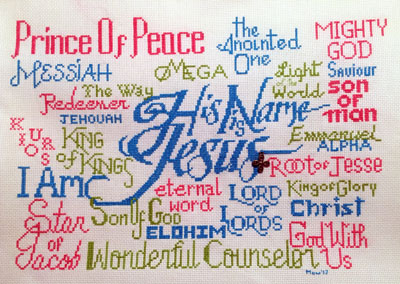 Prince Of Peace
the
Anointed
One
MIGHTY
GOD
MESSIAH
OMEGA
Light
of the
World
Saviour
The Way
Redeemer
son
of
man
JEHOUAH
His Name
is
Jesus
Emmanuel
ALPHA
KURIOS
KING
of KINGS
Root of Jesse
I Am
eternal
word
LORD
of
LORDS
King of Glory
Christ
Star
of
Jacob
Son Of God
ELOHIM
God With
Us
Wonderful Counselor